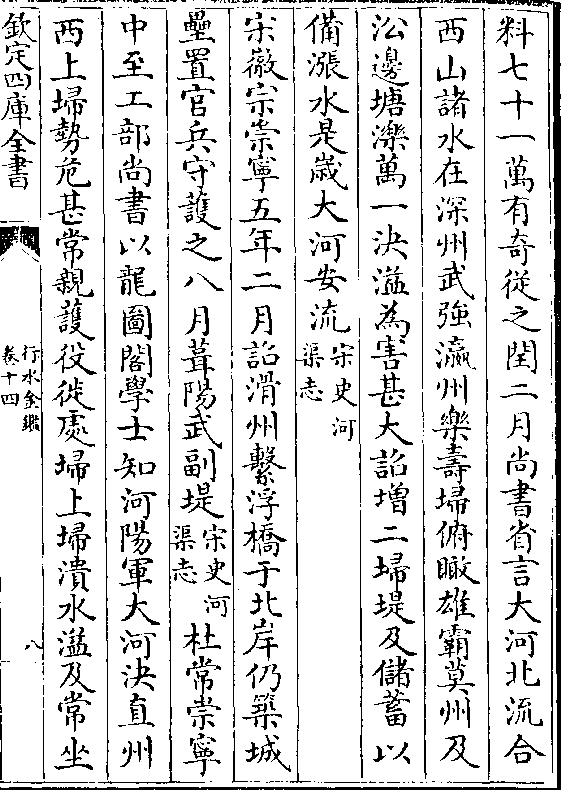 料七十一萬有奇從之閏二月尚書省言大河北流合
西山諸水在深州武強瀛州樂壽埽俯瞰雄霸莫州及
㳂邊塘濼萬一決溢為害甚大詔增二埽堤及儲蓄以
備漲水是歲大河安流宋史河渠志
宋徽宗崇寧五年二月詔滑州繫浮橋于北岸仍築城
壘置官兵守護之八月葺陽武副堤宋史河渠志杜常崇寧
中至工部尚書以龍圖閣學士知河陽軍大河決直州
西上埽勢危甚常親護役徙處埽上埽潰水溢及常坐
欽定四庫全書
行水金鑑
卷十四
八